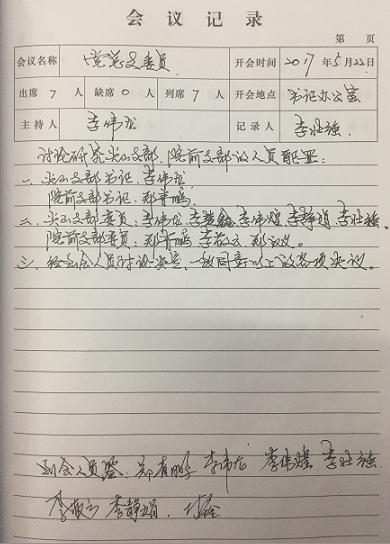 会议记录
第 页
会议名称 党总支委员 开会时间 2017年5月22日
出席 7 人 缺席 0 人 列席 7 人 开会地点 书记办公室
主持人 李伟龙 记录人 李壮强
讨论研究 支部、院前支部的人员配置:
一、 支部书记:李伟龙
院前支部书记:郑有鹏
二、 支部委员:李伟龙 李伟煌 李静娟 李壮强
院前支部委员:郑有鹏 李敬立 郑汉
三、经到会人员讨论决定,一致同意以上的各项决议。
到会人员签: 郑有鹏 李伟龙 李伟煌 李壮强
李敬立 李静娟